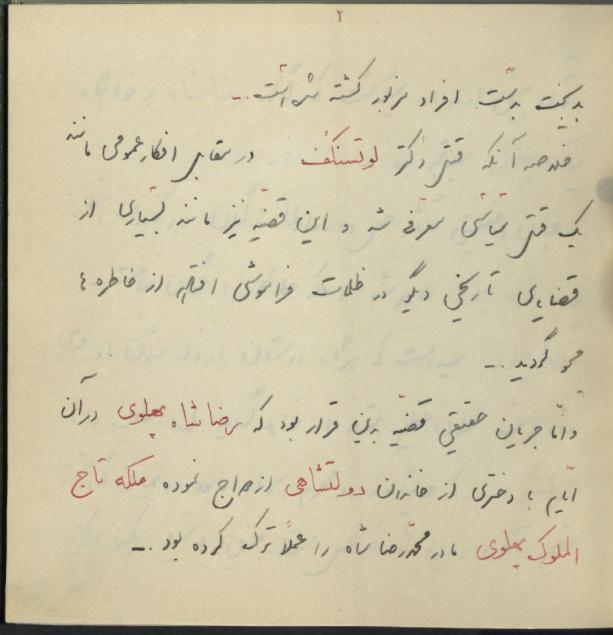 ۲
بدبخت بدست افراد مزبور کشته شده است.
خلاصه آنکه قتل دکتر لوتسنکف در مقابل افکار عمومی مانند
یک قتل سیاسی معرفی شد و این قضیه نیز مانند بسیاری از
قضایای تاریخی دیگر در ظلمات فراموشی افتاد از خاطره ها
محو گردید.
و امّا جریان حقیقی قضیّه بدین قرار بود که رضا شاه پهلوی در آن
ایّام با دختری از خاندان دولتشاهی ازدواج نموده ملکه تاج
الملوک پهلوی مادر محمّدرضا شاه را عملاً ترک کرده بود.